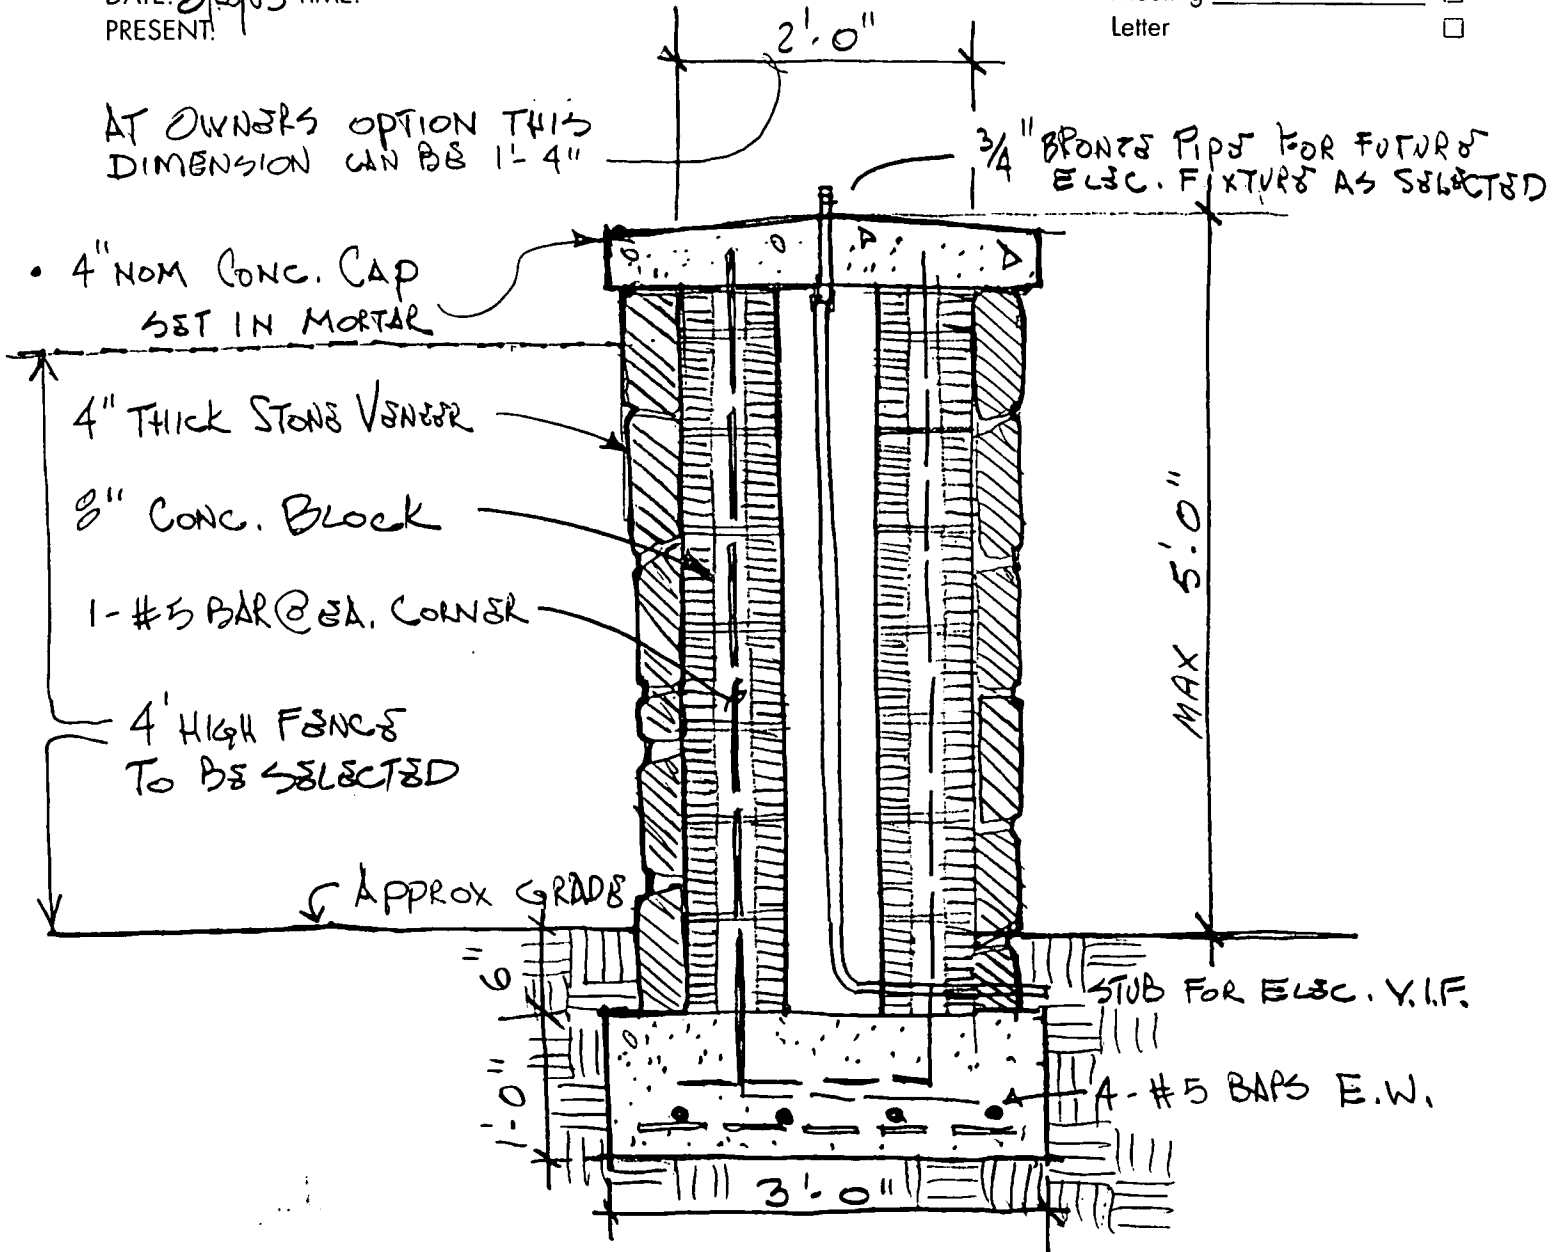 DATE: TIME:
PRESENT:
Letter
2'-0"
AT OWNERS OPTION THIS
DIMENSION CAN BE 1'-4"
3/4" BRONZE PIPE FOR FUTURE
ELEC. FIXTURE AS SELECTED
• 4" NOM CONC. CAP
SET IN MORTAR
4" THICK STONE VENEER
8" CONC. BLOCK
1-#5 BAR @ EA. CORNER
4' HIGH FENCE
TO BE SELECTED
MAX 5'-0"
APPROX GRADE
6"
STUB FOR ELEC. V.I.F.
1'-0"
4-#5 BARS E.W.
3'-0"